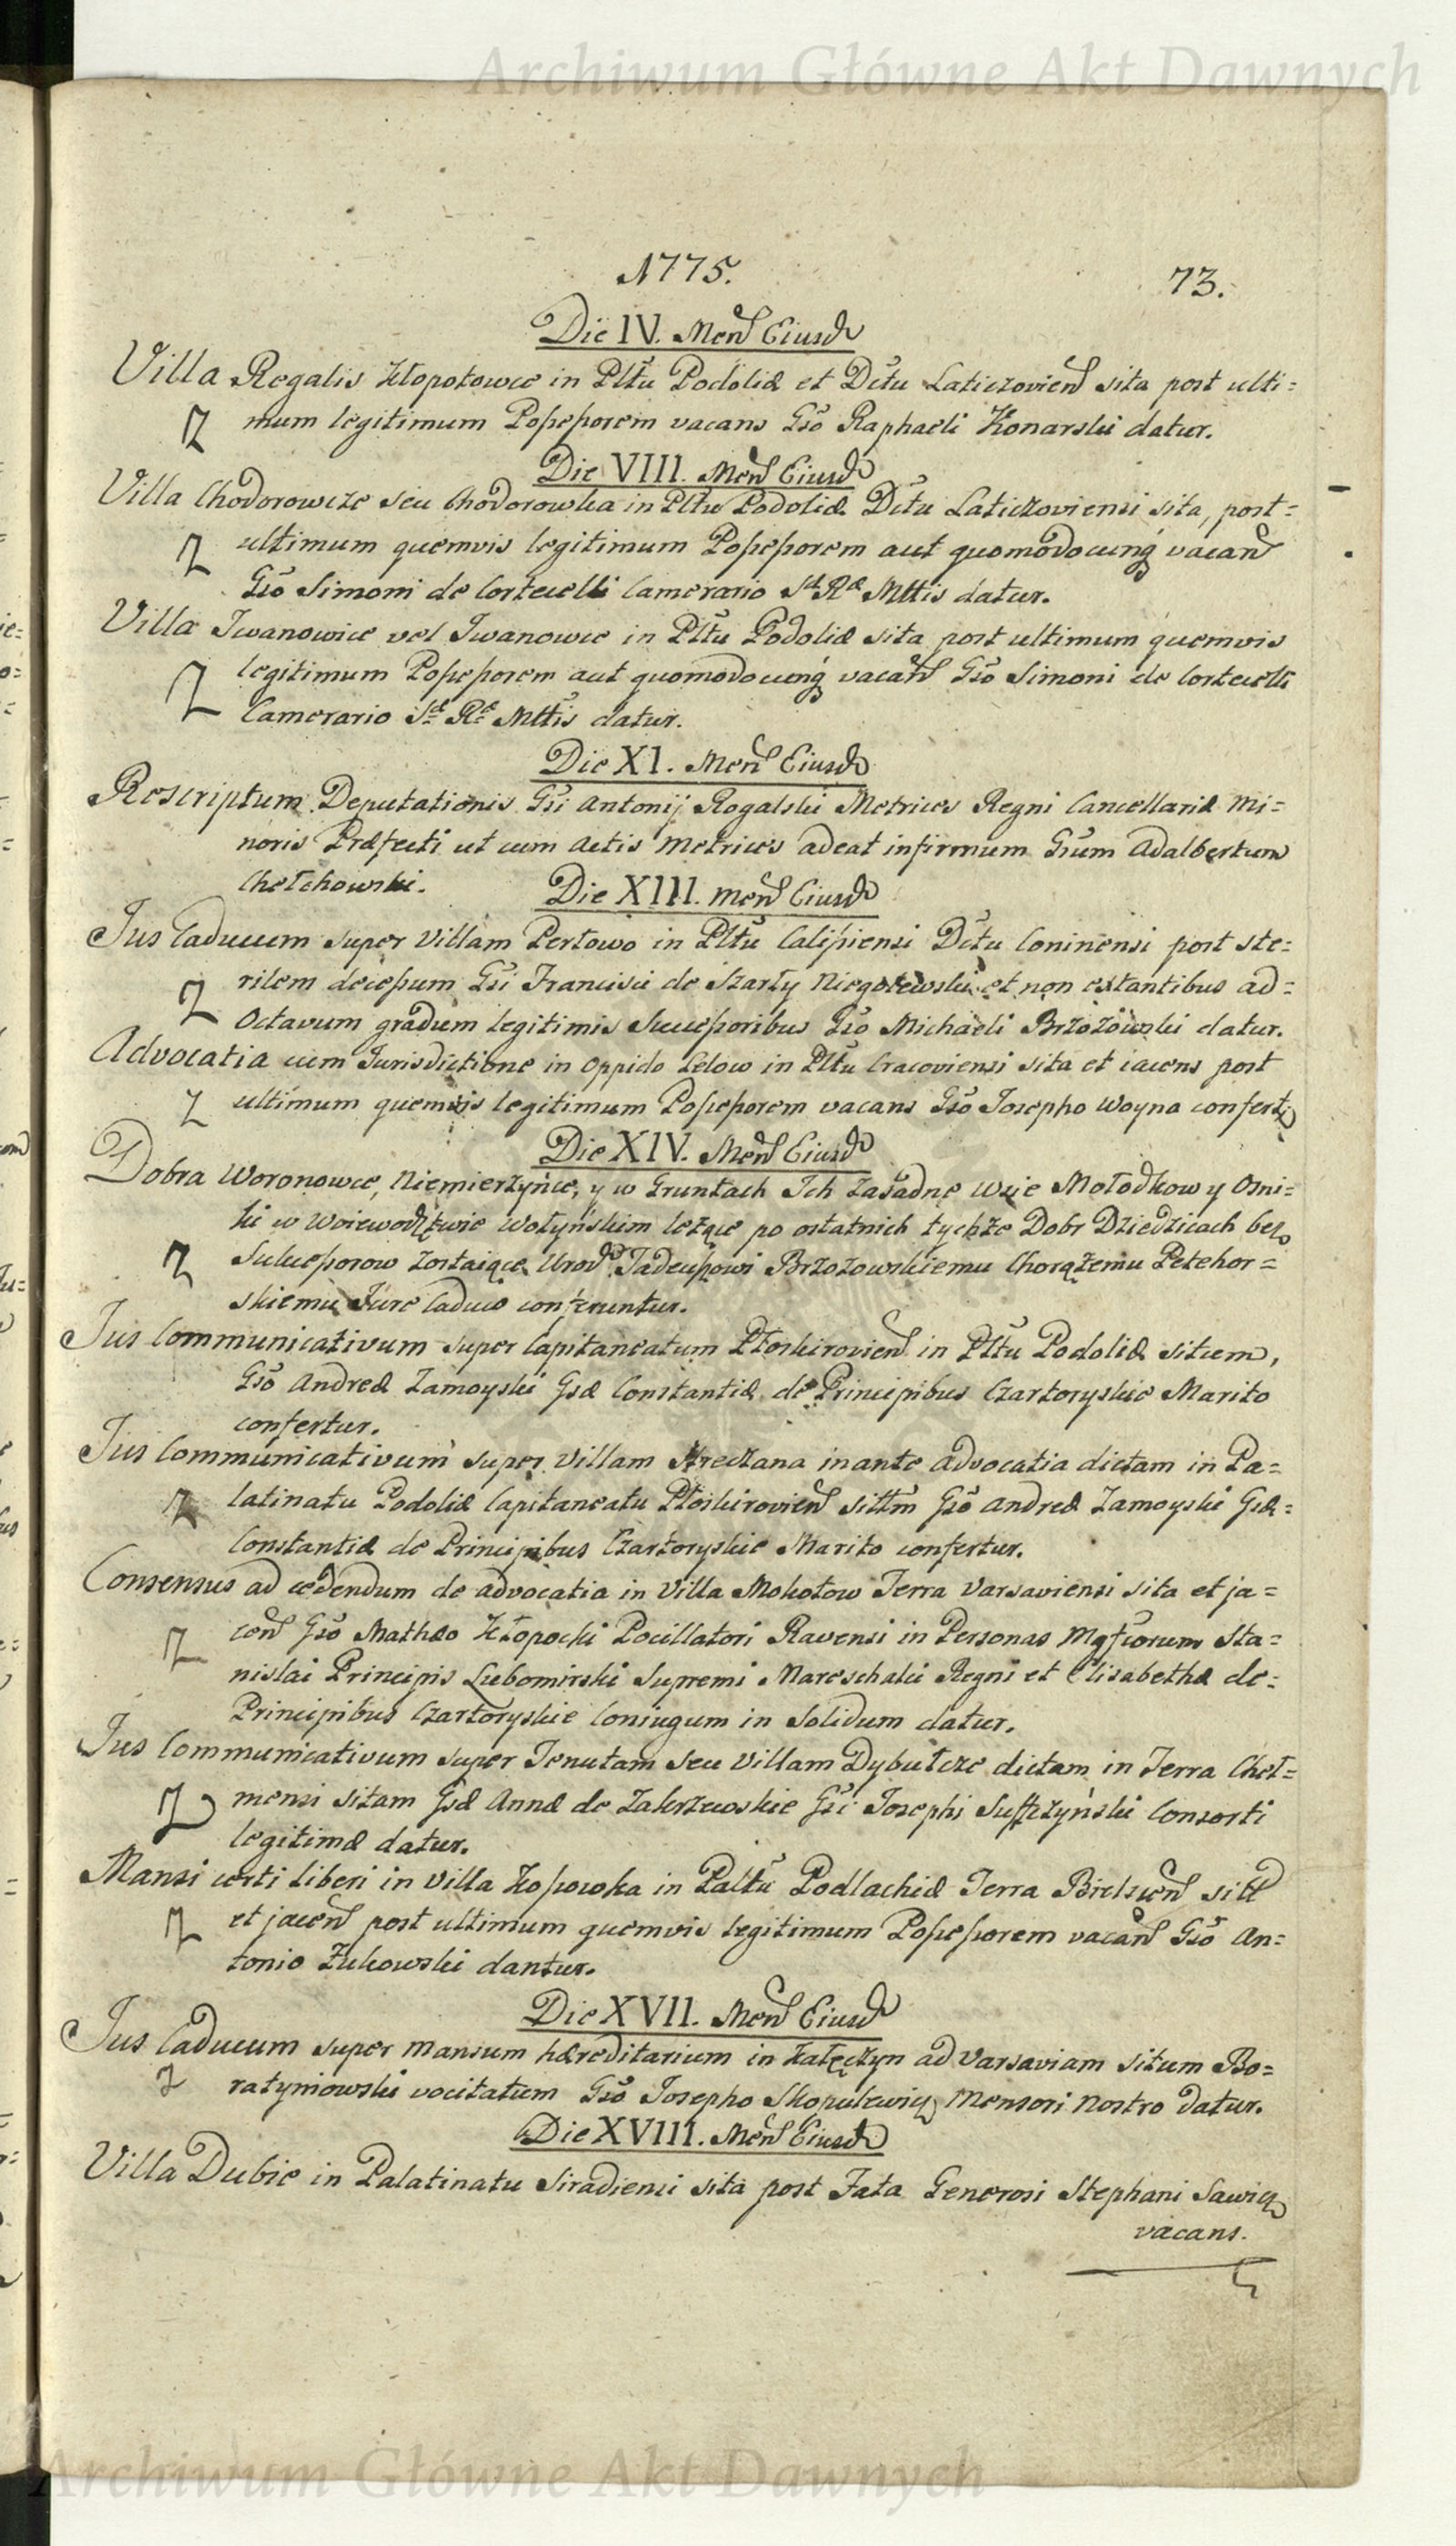 Archiwum Główne Akt Dawnych
1775.
73.
Die IV. Men̄ Eiusd
Villa Regalis Kłopotowce in Pltu Podoliæ et Dctu Laticzovien̄ sita post ulti=
mum legitimum Possessorem vacans Gso Raphaeli Konarski datur.
Die VIII. Men̄ Eiusd
Villa Chodorowcze seu Chodorowka in Pltu Podoliæ Dctu Laticzoviensi sita, post=
ultimum quemvis legitimum Possessorem aut quomodocunq vacan̄
Gso Simoni de Corticelli Camerario Sæ Ræ Mttis datur.
Villa Iwanowice vel Iwanowce in Pltu Podoliæ sita post ultimum quemvis
legitimum Possessorem aut quomodocunq vacan̄ Gso Simoni de Corticelli
Camerario Sæ Ræ Mttis datur.
Die XI. Men̄ Eiusd
Rescriptum Deputationis Gsi Antonij Rogalski Metrices Regni Cancellariæ Mi=
noris Præfecti ut cum Actis Metrices adeat infirmum Gsum Adalbertum
Chełchowski.
Die XIII. Men̄ Eiusd
Jus Caducum super Villam Pertowo in Pltu Calissiensi Dctu Coninensi post ste=
rilem decessum Gsi Francisci de Skarły Niegolewski et non extantibus ad=
Octavum gradum legitimis Successoribus Gso Michaeli Brzozowski datur.
Advocatia cum Jurisdictione in Oppido Lelow in Pltu Cracoviensi sita et iacens post
ultimum quemvis legitimum Possessorem vacans Gso Josepho Woyna confertr
Die XIV. Men̄ Eiusd
Dobra Woronowce, Niemierzyńce, y w Gruntach Ich zasadne Wsie Mołodkow y Osni=
ki w Woiewodztwie Wołyńskim leżące po ostatnich tychże Dobr Dziedzicach bez
Sukcessorow zostaiące Urod. Tadeuszowi Brzozowskiemu Chorążemu Petehor=
skiemu Jure Caduco conferuntur.
Jus Communicativum super Capitaneatum Płoskirovien̄ in Pltu Podoliæ situm,
Gso Andreæ Zamoyski Gsæ Constantiæ de Principibus Czartoryskie Marito
confertur.
Jus Communicativum super Villam Hreczana in ante Advocatia dictam in Pa=
latinatu Podoliæ Capitaneatu Płoskirovien̄ sittm̄ Gso Andreæ Zamoyski Gsæ=
Constantiæ de Principibus Czartoryskie Marito confertur.
Consensus ad cedendum de Advocatia in Villa Mokotow Terra Varsaviensi sita et ja=
cen̄ Gso Mathæo Kłopocki Pocillatori Ravensi in Personas Mgficorum Sta=
nislai Principis Lubomirski Supremi Mareschalci Regni et Elisabethæ de=
Principibus Czartoryskie Coniugum in Solidum datur.
Jus Communicativum super Tenutam seu Villam Dybułcze dictam in Terra Cheł=
mensi sitam Gsæ Annæ de Zakrzewskie Gsi Josephi Suffczyński Consorti
legitimæ datur.
Mansi certi liberi in Villa Łopowka in Paltu Podlachiæ Terra Bielscen̄ sitt
et jacen̄ post ultimum quemvis legitimum Possessorem vacan̄ Gso An=
tonio Żukowski dantur.
Die XVII. Men̄ Eiusd
Jus Caducum super Mansum hæreditarium in Kałęczyn ad Varsaviam situm Bo=
ratyniowski vocitatum Gso Josepho Skopulewicz Mensori Nostro datur.
Die XVIII. Men̄ Eiusd
Villa Dubie in Palatinatu Siradiensi sita post Fata Generosi Stephani Sawicz
vacans.
Archiwum Główne Akt Dawnych